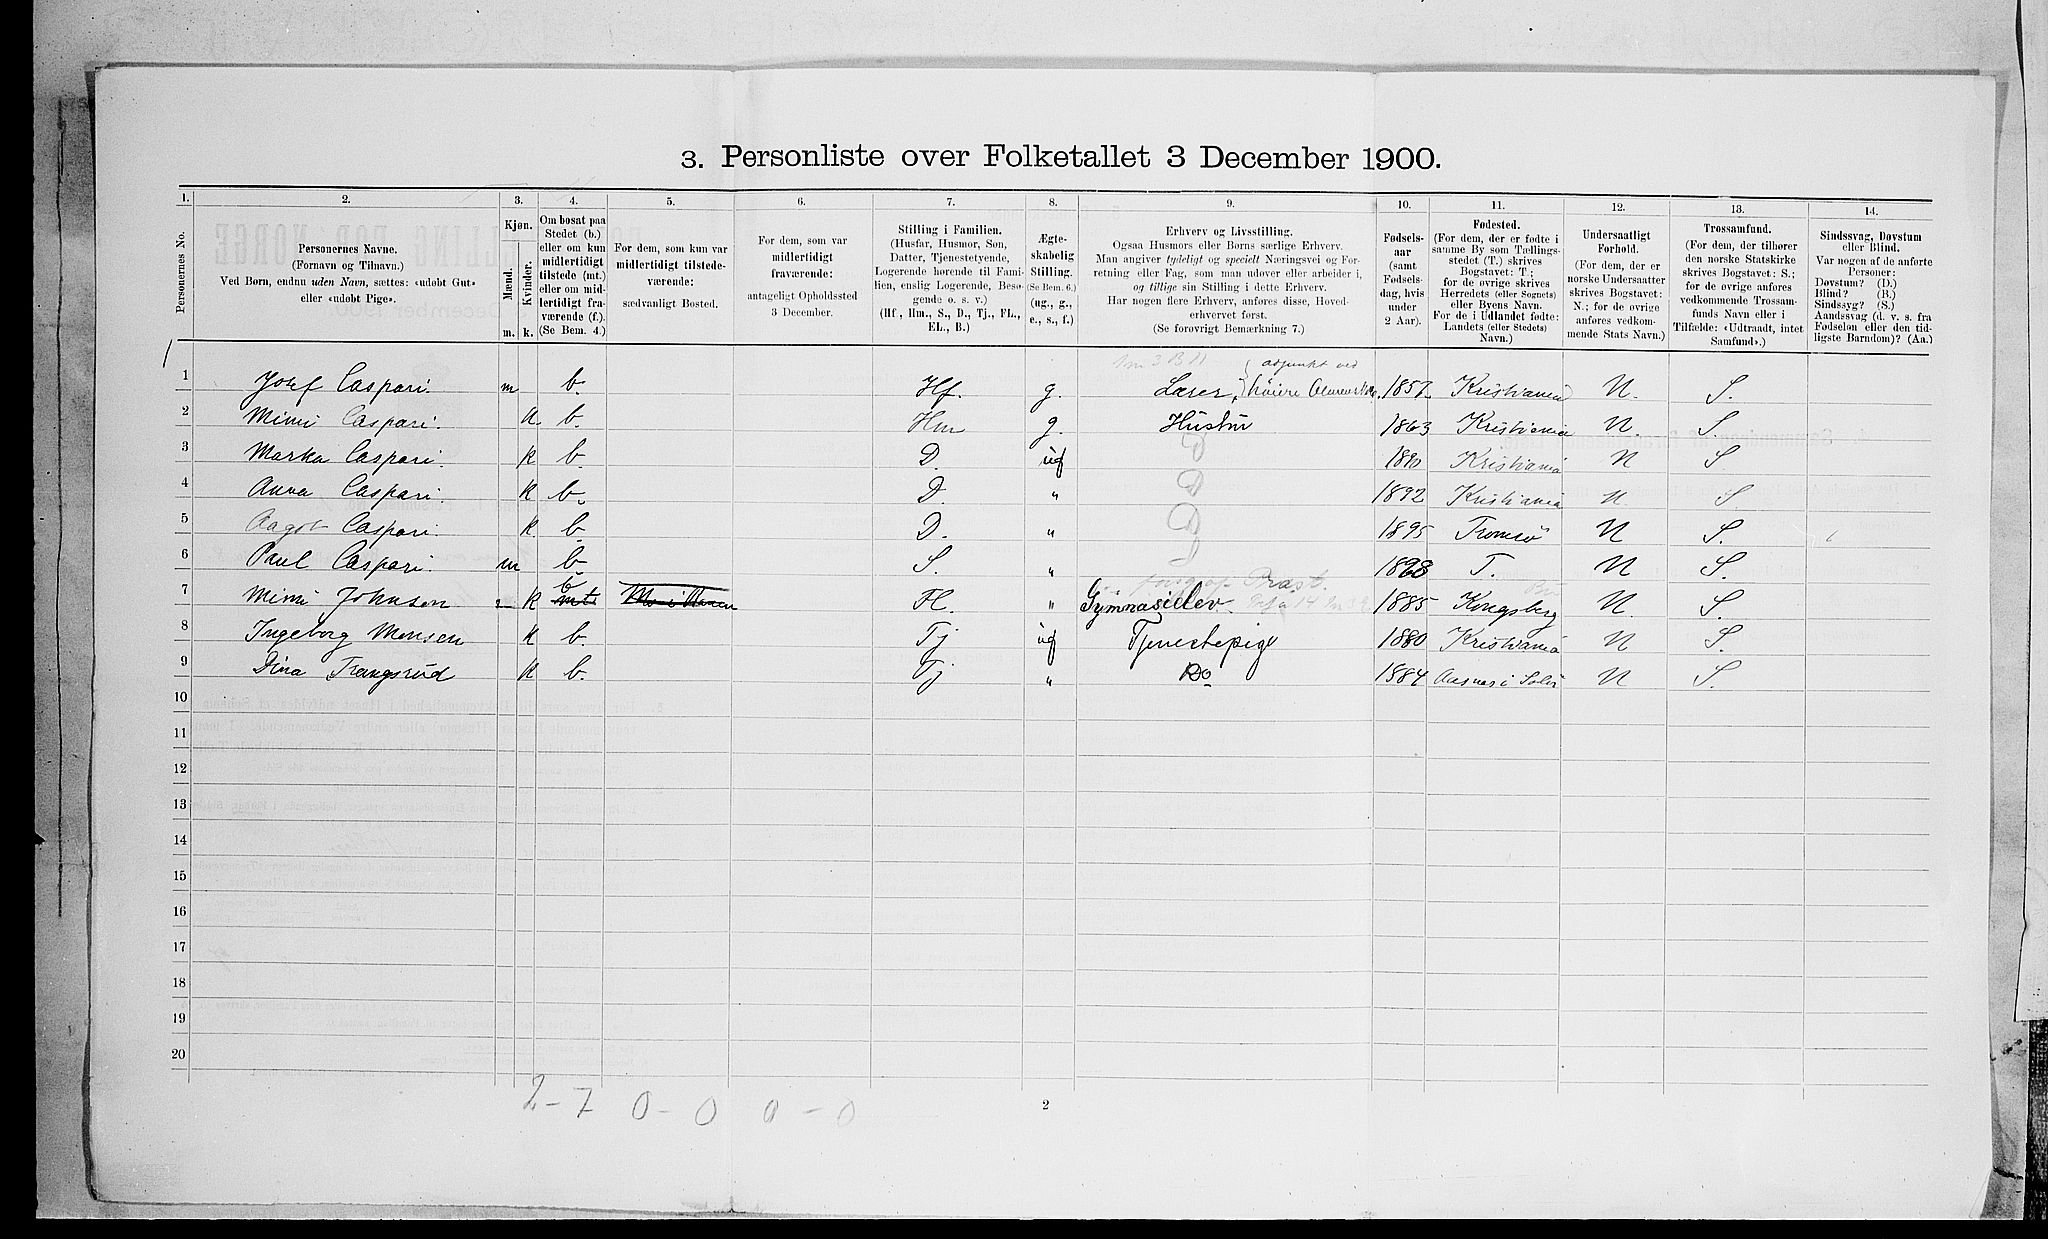 3. Personliste over Folketallet 3 December 1900.
1. 2. 3. 4. 5. 6. 7. 8. 9. 10. 11. 12. 13. 14.
Personernes No.
Personernes Navne.
(Fornavn og Tilnavn.)
Ved Børn, endnu uden Navn, sættes: «udøbt Gut»
eller «udøbt Pige».
Kjøn.
Mænd. Kvinder.
m. k.
Om bosat paa
Stedet (b.)
eller om kun
midlertidigt
tilstede (mt.)
eller om mid-
lertidigt fra-
værende (f.).
(Se Bem. 4.)
For dem, som kun var
midlertidigt tilstede-
værende:
sædvanligt Bosted.
For dem, som var
midlertidigt
fraværende:
antageligt Opholdssted
3 December.
Stilling i Familien.
(Husfar, Husmor, Søn,
Datter, Tjenestetyende,
Logerende hørende til Fami-
lien, enslig Logerende, Besø-
gende o. s. v.)
(Hf., Hm., S., D., Tj., FL.,
EL., B.)
Ægte-
skabelig
Stilling.
(Se Bem. 6.)
(ug., g.,
e., s., f.)
Erhverv og Livsstilling.
Ogsaa Husmors eller Børns særlige Erhverv.
Man angiver tydeligt og specielt Næringsvei og For-
retning eller Fag, som man udøver eller arbeider i,
og tillige sin Stilling i dette Erhverv.
Har nogen flere Erhverv, anføres disse, Hoved-
erhvervet først.
(Se forøvrigt Bemærkning 7.)
Fødsels-
aar
(samt
Fødsels-
dag, hvis
under
2 Aar).
Fødested.
(For dem, der er fødte i
samme By som Tællings-
stedet (T.) skrives
Bogstavet: T.;
for de øvrige skrives
Herredets (eller Sognets)
eller Byens Navn.
For de i Udlandet fødte:
Landets (eller Stedets)
Navn.)
Undersaatligt
Forhold.
(For dem, der er
norske Undersaatter
skrives Bogstavet:
N.; for de øvrige
anføres vedkom-
mende Stats Navn.)
Trossamfund.
(For dem, der tilhører
den norske Statskirke
skrives Bogstavet: S.;
for de øvrige anføres
vedkommende Trossam-
funds Navn eller i
Tilfælde: «Udtraadt, intet
Samfund».)
Sindssvag, Døvstum
eller Blind.
Var nogen af de anførte
Personer:
Døvstum? (D.)
Blind? (B.)
Sindssyg? (S.)
Aandssvag (d. v. s. fra
Fødselen eller den tid-
ligste Barndom)? (Aa.)
adjunkt ved
1 Josef Caspari. m b. Hf. g. Lærer, høiere 1857. Kristiania N. S.
2 Mimi Caspari. k. b. Hm g. Hustru 1863 Kristiania N. S.
3 Caspari. k b. D. ug 1890 Kristiania N S
4 Anna Caspari. k b. D. " 1892 Kristiania N. S.
5 Aagot Caspari. k. b. D. " 1895 Tromsö N S.
6 Paul Caspari. m b S. " 1898 T. N S.
b
7 Mimi Johnson k mt Fl. " Gymnasielev. 1885 Kongsberg N. S.
8 Ingeborg Monsen k b. Tj ug Tjenestepige 1880 Kristiania N S.
9 Dina Trangsrud k b. Tj " Do 1884 Aasnes i Solør N S.
10
11
12
13
14
15
16
17
18
19
20
2-7 0-0 0-0
2